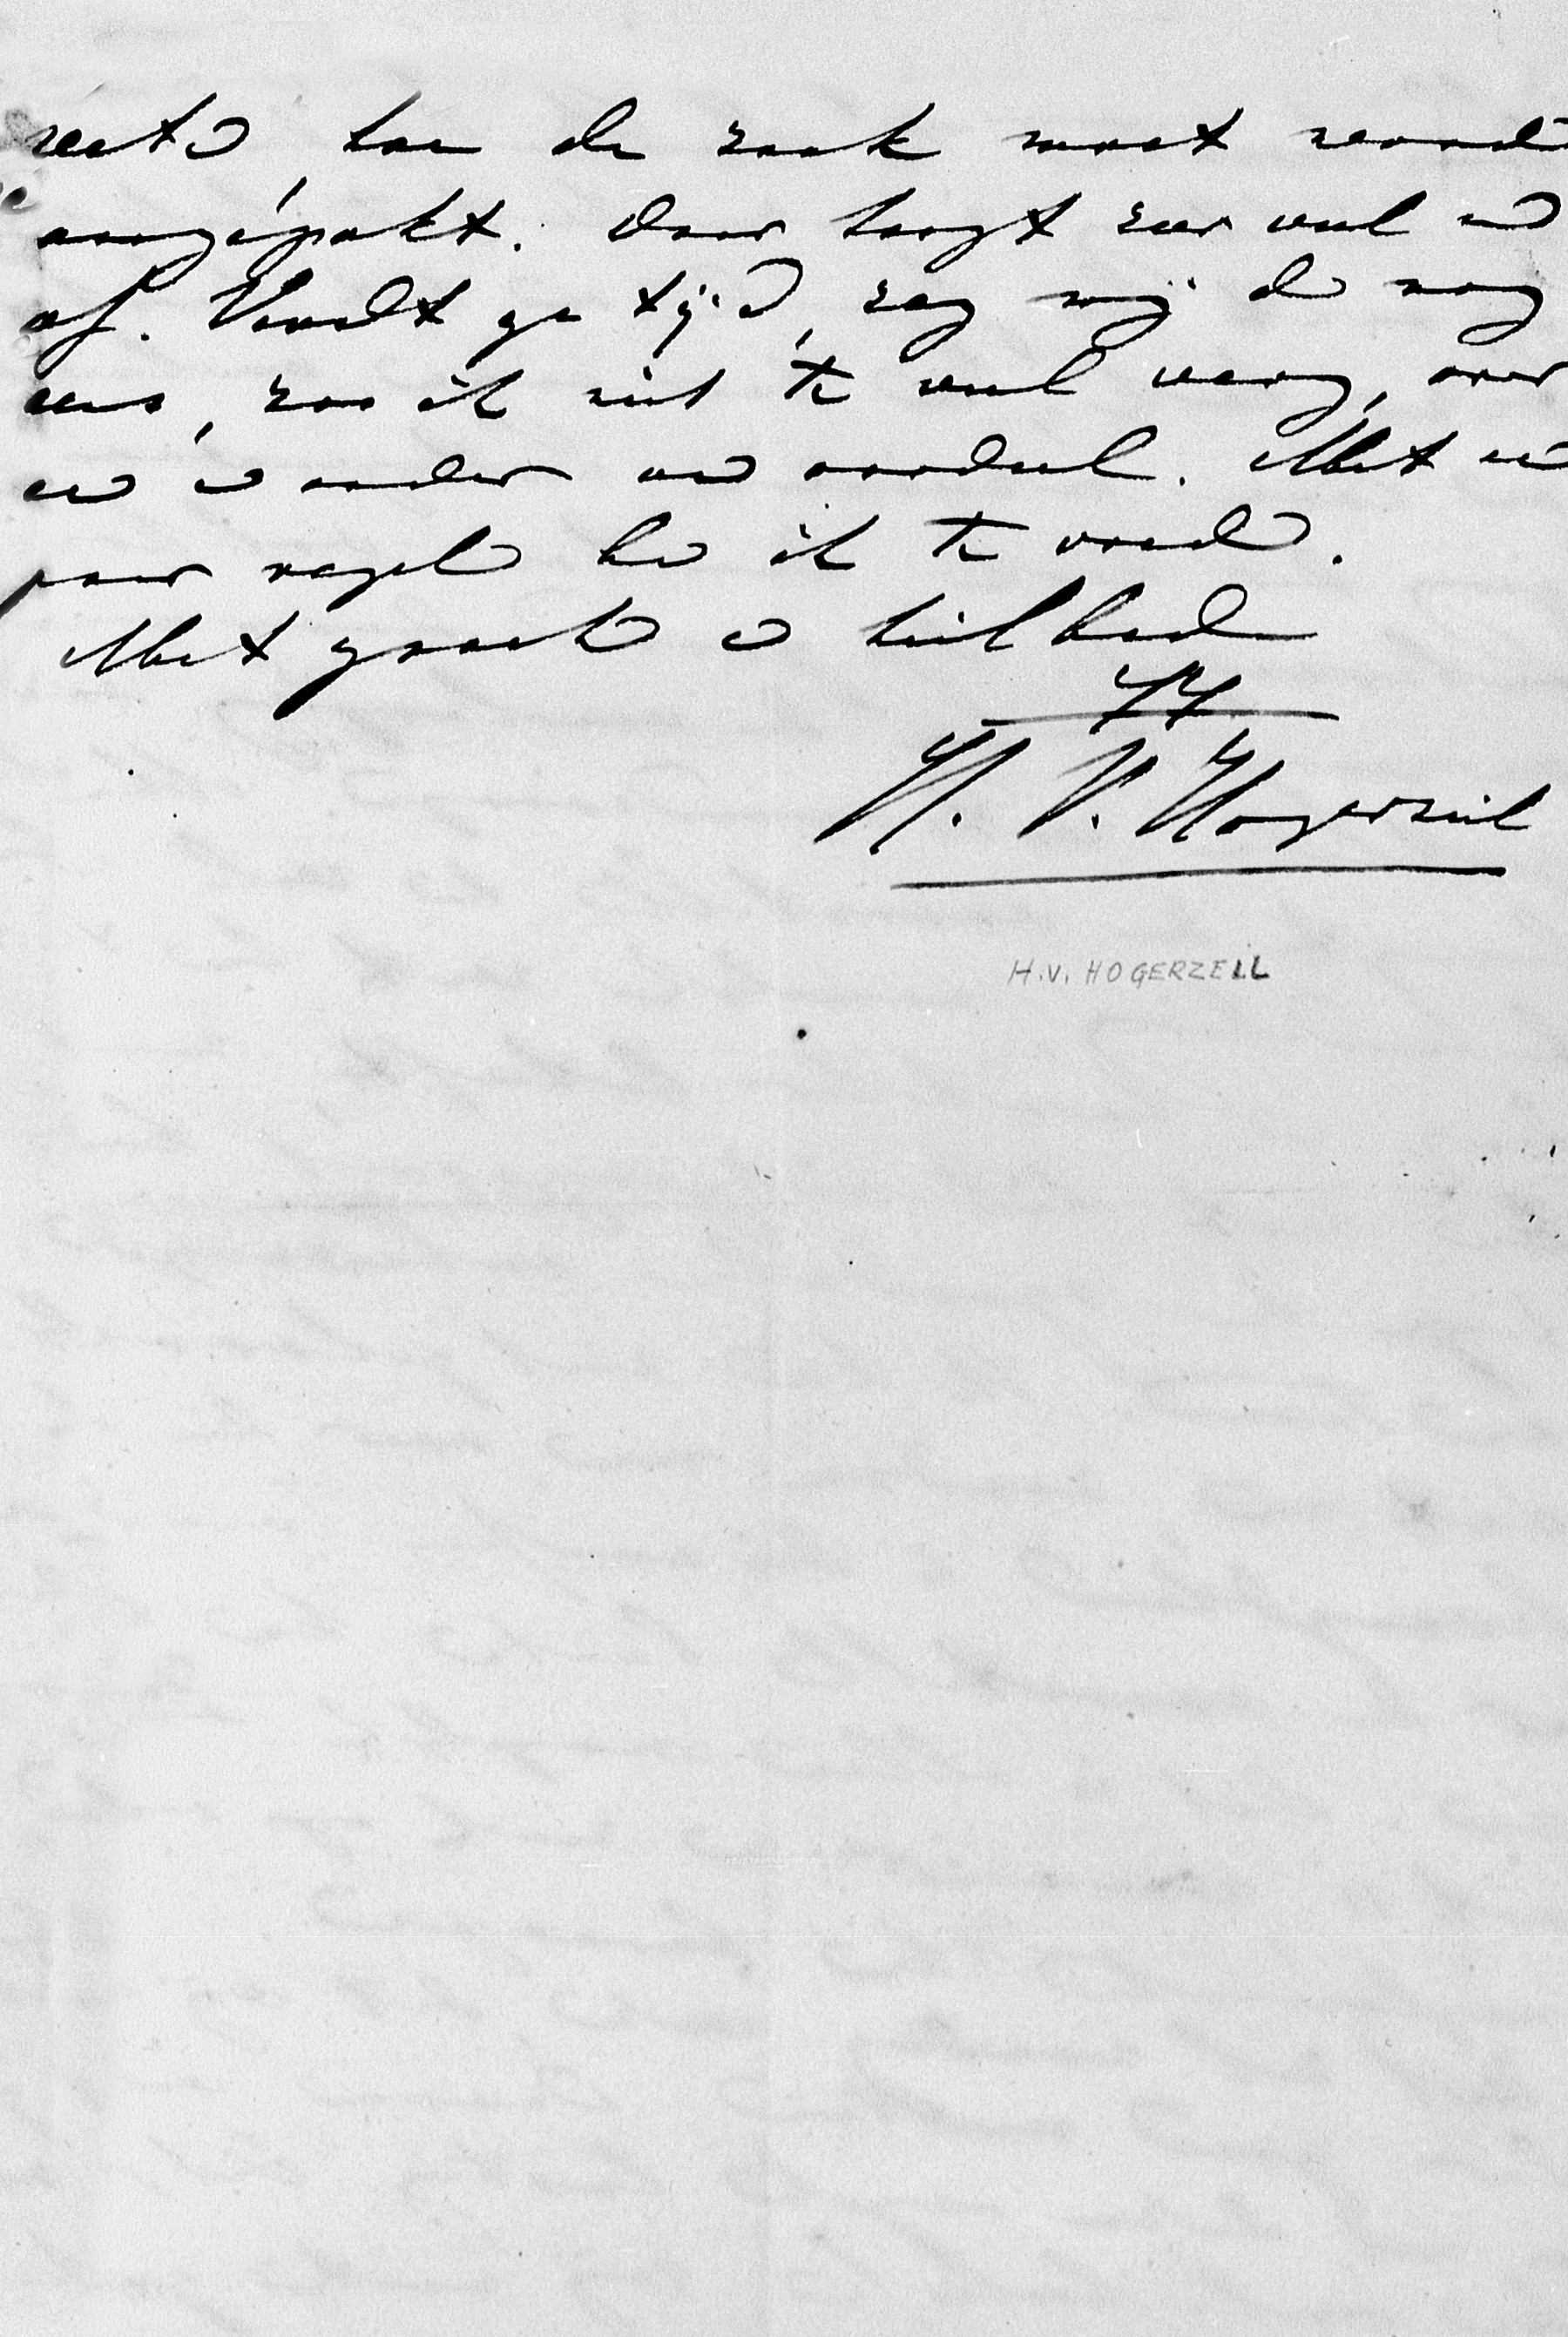 weten, hoe de zaak moet worden
aangepakt. Daar hangt zeer veel van
af. Vindt ge tijd, zeg mij dan nog
eens, zoo ik niet te veel verg, over
een en ander uw oordeel. Met een
paar regelen ben ik te vreden.
Met groeten en heilbede
tt
H. V. Hogerzeil
H.V. HOGERZEIL